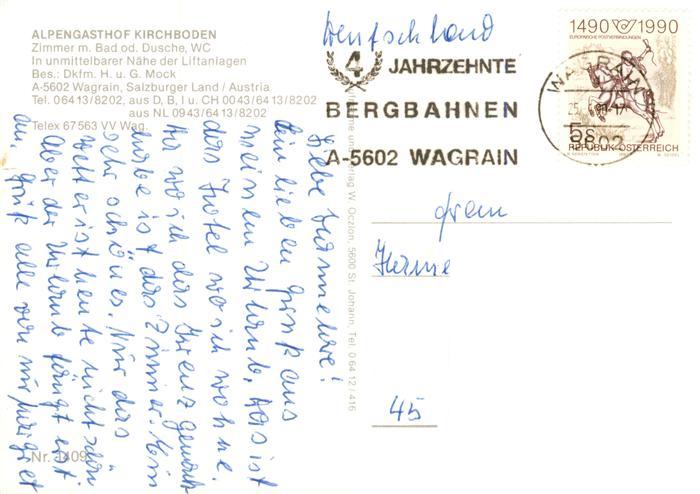 ALPENGASTHOF KIRCHBODEN
Zimmer m. Bad od. Dusche, WC
In unmittelbarer Nähe der Liftanlagen
Bes.: Dkfm. H. u. G. Mock
A-5602 Wagrain, Salzburger Land / Austria
Tel. 06413/8202, aus D, B, I u. CH 0043/6413/8202
aus NL 0943/6413/8202
Telex 67563 VV Wag.
Liebe
dein lieben Gruß aus
meinem Urlaub, das ist
das Hotel wo ich wohne.
wo ich das Kreuz gemacht
habe ist das Zimmer. Ein
sehr schönes. Nur das
Wetter ist heute nicht schön
Aber der Urlaub fängt erst
an, Grüß alle von mir
Nr. 1409
Verlag W. Oczlon, 5600 St. Johann, Tel. 06412/416
Deutschland
4 JAHRZEHNTE
BERGBAHNEN
A-5602 WAGRAIN
1490 1990
EUROPÄISCHE POSTVERBINDUNGEN
5S
REPUBLIK ÖSTERREICH
WAGRAIN
5602
Frau
Herne
45